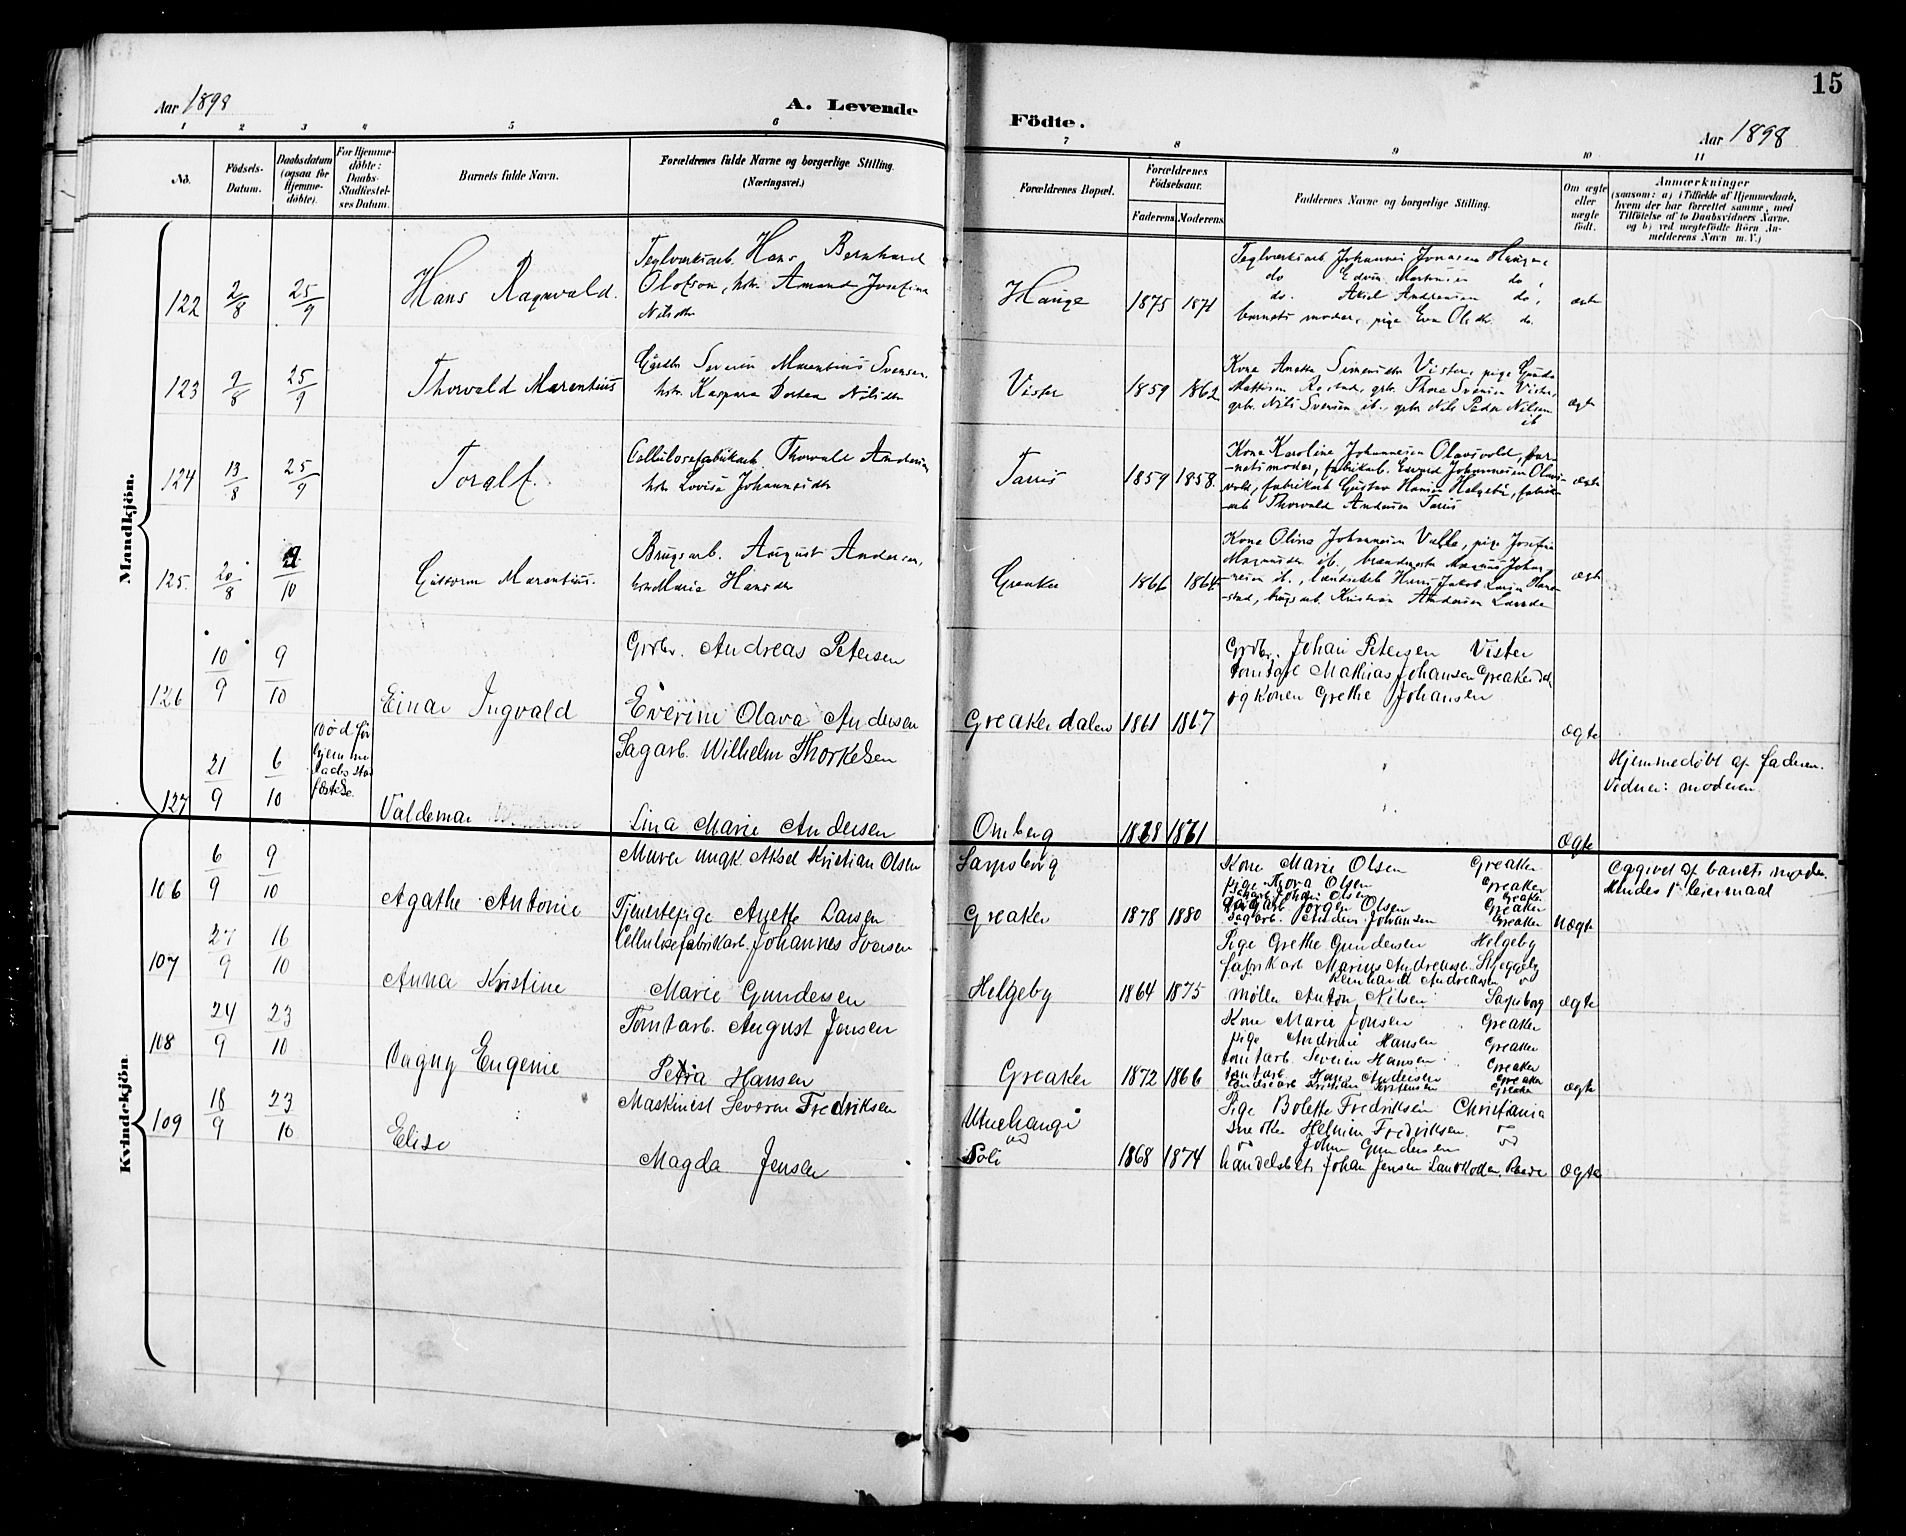 15
Aar 1898
A. Levende
Födte.
Aar 1898
1 2 3 4 5 6 7 8 9 10 11
No.
Födsels-
Datum.
Daabsdatum
(ogsaa for
Hjemme-
döbte).
For Hjemme-
döbte:
Daabs-
Stadfæstel-
ses Datum.
Barnets fulde Navn.
Forældrenes fulde Navne og borgerlige Stilling.
(Næringsvei.)
Forældrenes Bopæl.
Forældrenes
Födselsaar.
Faderens Moderens
Faddernes Navne og borgerlige Stilling.
Om ægte
eller
uægte
födt.
Anmærkninger
(saasom: a) i Tilfælde af Hjemmedaab,
hvem der har forrettet samme, med
Tilföielse af to Daabsvidners Navne,
og b) ved uægtefödte Börn An-
melderens Navn m. V.)
Mandkjön.
122 2/8 25/9 Hans Ragnvald.
Teglværksarb. Hans Bernhard
Olofson, hstr. Amanda Josefina
Nilsdtr
Hauge 1875 1871
Teglværksarb Johannes Jonasen Haugen,
do Edvin Martinsen do,
do. Axel Andreasen do,
barnets moder, pige Eva Olsdtr. do.
ægte
123 7/8 25/9 Thorvald Marentius
Gårdbr Severin Marentius Svensen
hstr. Kaspara Dortea Nilsdtr
Vister 1859 1862
Kone Anetta Simensdtr Vister, pige Gunda
Mattisen Rostad, grbr. Thore Svensen Vister,
grbr. Nils Svensen ib., grbr Nils Peder Nilsen
ib
ægte
124 13/8 25/9 Toralf.
Cellulosefabrikarb. Thorvald Andersen,
hstr Lovisa Johannesdtr
Tarris 1859 1858.
Kone Karoline Johannesen Olavsvold, bar-
-nets moder, fabrikarb. Edvard Johannesen Olavs-
vold, fabrikarb Gustav Hansen Helgeby, fabrik-
arb Thorvald Andersen Tarris
ægte
125. 20/8 2/10 Guttorm Marentius.
Brugsarb. August Andersen,
hstr Maria Hansdtr
Greaker 1866 1864
Kone Olina Johannesen Valle, pige Josefine
Magnusdtr ib.,
Larsen
brugsarb. Kristian Andersen Lande
ægte
126 10/9 9/10 Einar Ingvald
Grdbr. Andreas Petersen
Everine Olava Andersen
Greakerdalen 1861 1867
Grdbr. Johan Petersen Vister
tomtarb Mathias Johansen Greakerdal
og Konen Grethe Johansen
ægte
127 21/9 6/10
Nød for
hjemme
daabs stad
festelse.
Valdemar
Sagarb. Wilhelm Thorkelsen
Lina Marie Andersen
Omberg 1868 1861
ægte
Hjemmedøbt af faderen.
Vidner: moderen
Kvindekjön.
106 6/9 9/10 Agathe Antonie
Murer ungk Aksel Kristian Olsen
Tjenestepige Anette Larsen
Sarpsborg
Greaker 1878 1880
Kone Marie Olsen Greaker
pige Thora Olsen Greaker
Jørgen Olsen Greaker
Sagarb. Anders Johansen Greaker
Uægte
Opgivet af barnets moder.
Hendes 1ste leiermaal
107 27/9 16/10 Anna Kristine
Cellulosefabrikarb. Johannes Iversen
Marie Gundersen
Helgeby 1864 1875
Pige Grethe Gundersen Helgeby
fabrikarb Marius Andreassen Skjeggeby
Reinhardt Andreassen do
Møller Anton Nilsen Sarpsborg
ægte
108 24/9 23/10 Dagny Eugenie
Tomtarb. August Jensen
Petra Hansen
Greaker 1872 1866
Kone Marie Jonsen Greaker
pige Andrine Hansen Greaker
tomtarb. Severin Hansen Greaker
tomtarb. Hans Andersen Greaker
Kristian Kristensen Greaker
ægte
109 18/9 23/10 Elise
Maskinist Severin Fredriksen
Magda Jensen
Utnehaugen
ved
Soli 1868 1874
Pige Bolette Fredriksen Christiania
snedker Helmin Fredriksen do
do John Gundersen do
handelsbetj. Johan Jensen Raade
ægte